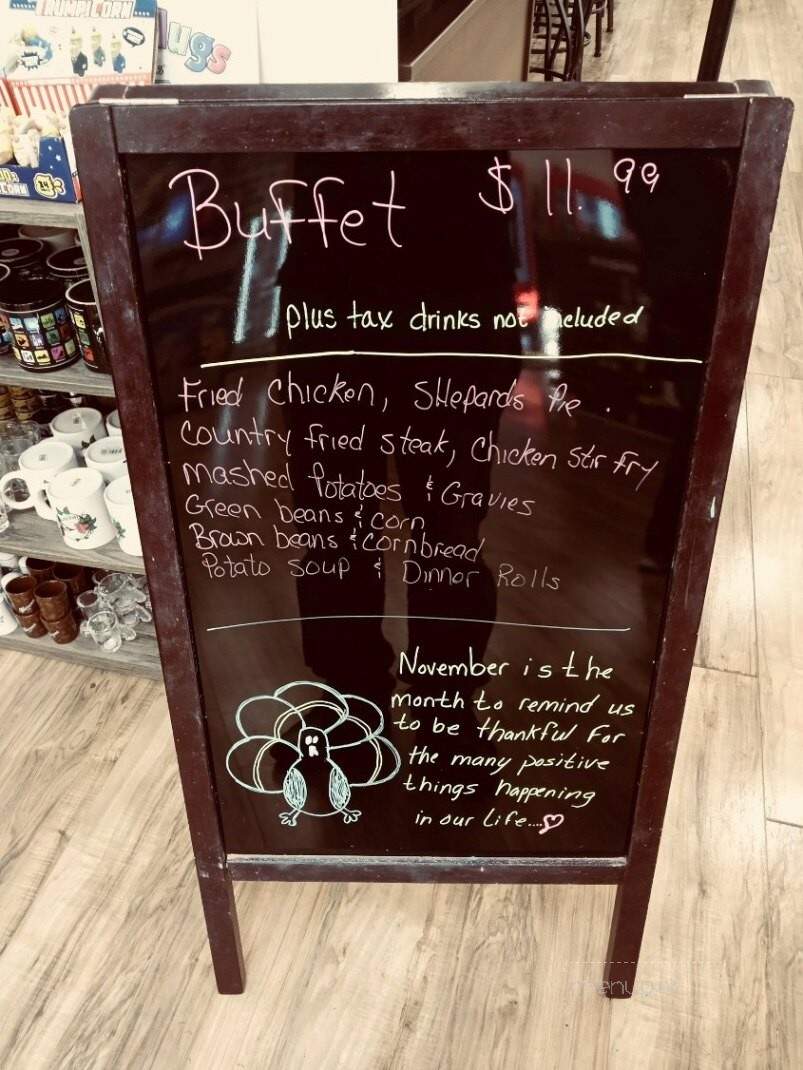 RUMPLCORN
ugs
Buffet $11.99
plus tax drinks not included
Fried Chicken, SHepards Pie.
Country fried steak, Chicken Stir Fry
mashed Potatoes & Gravies
Green beans & corn
Brown beans & cornbread
Potato soup & Dinner Rolls
November is the
month to remind us
to be thankful For
the many positive
things happening
in our Life....